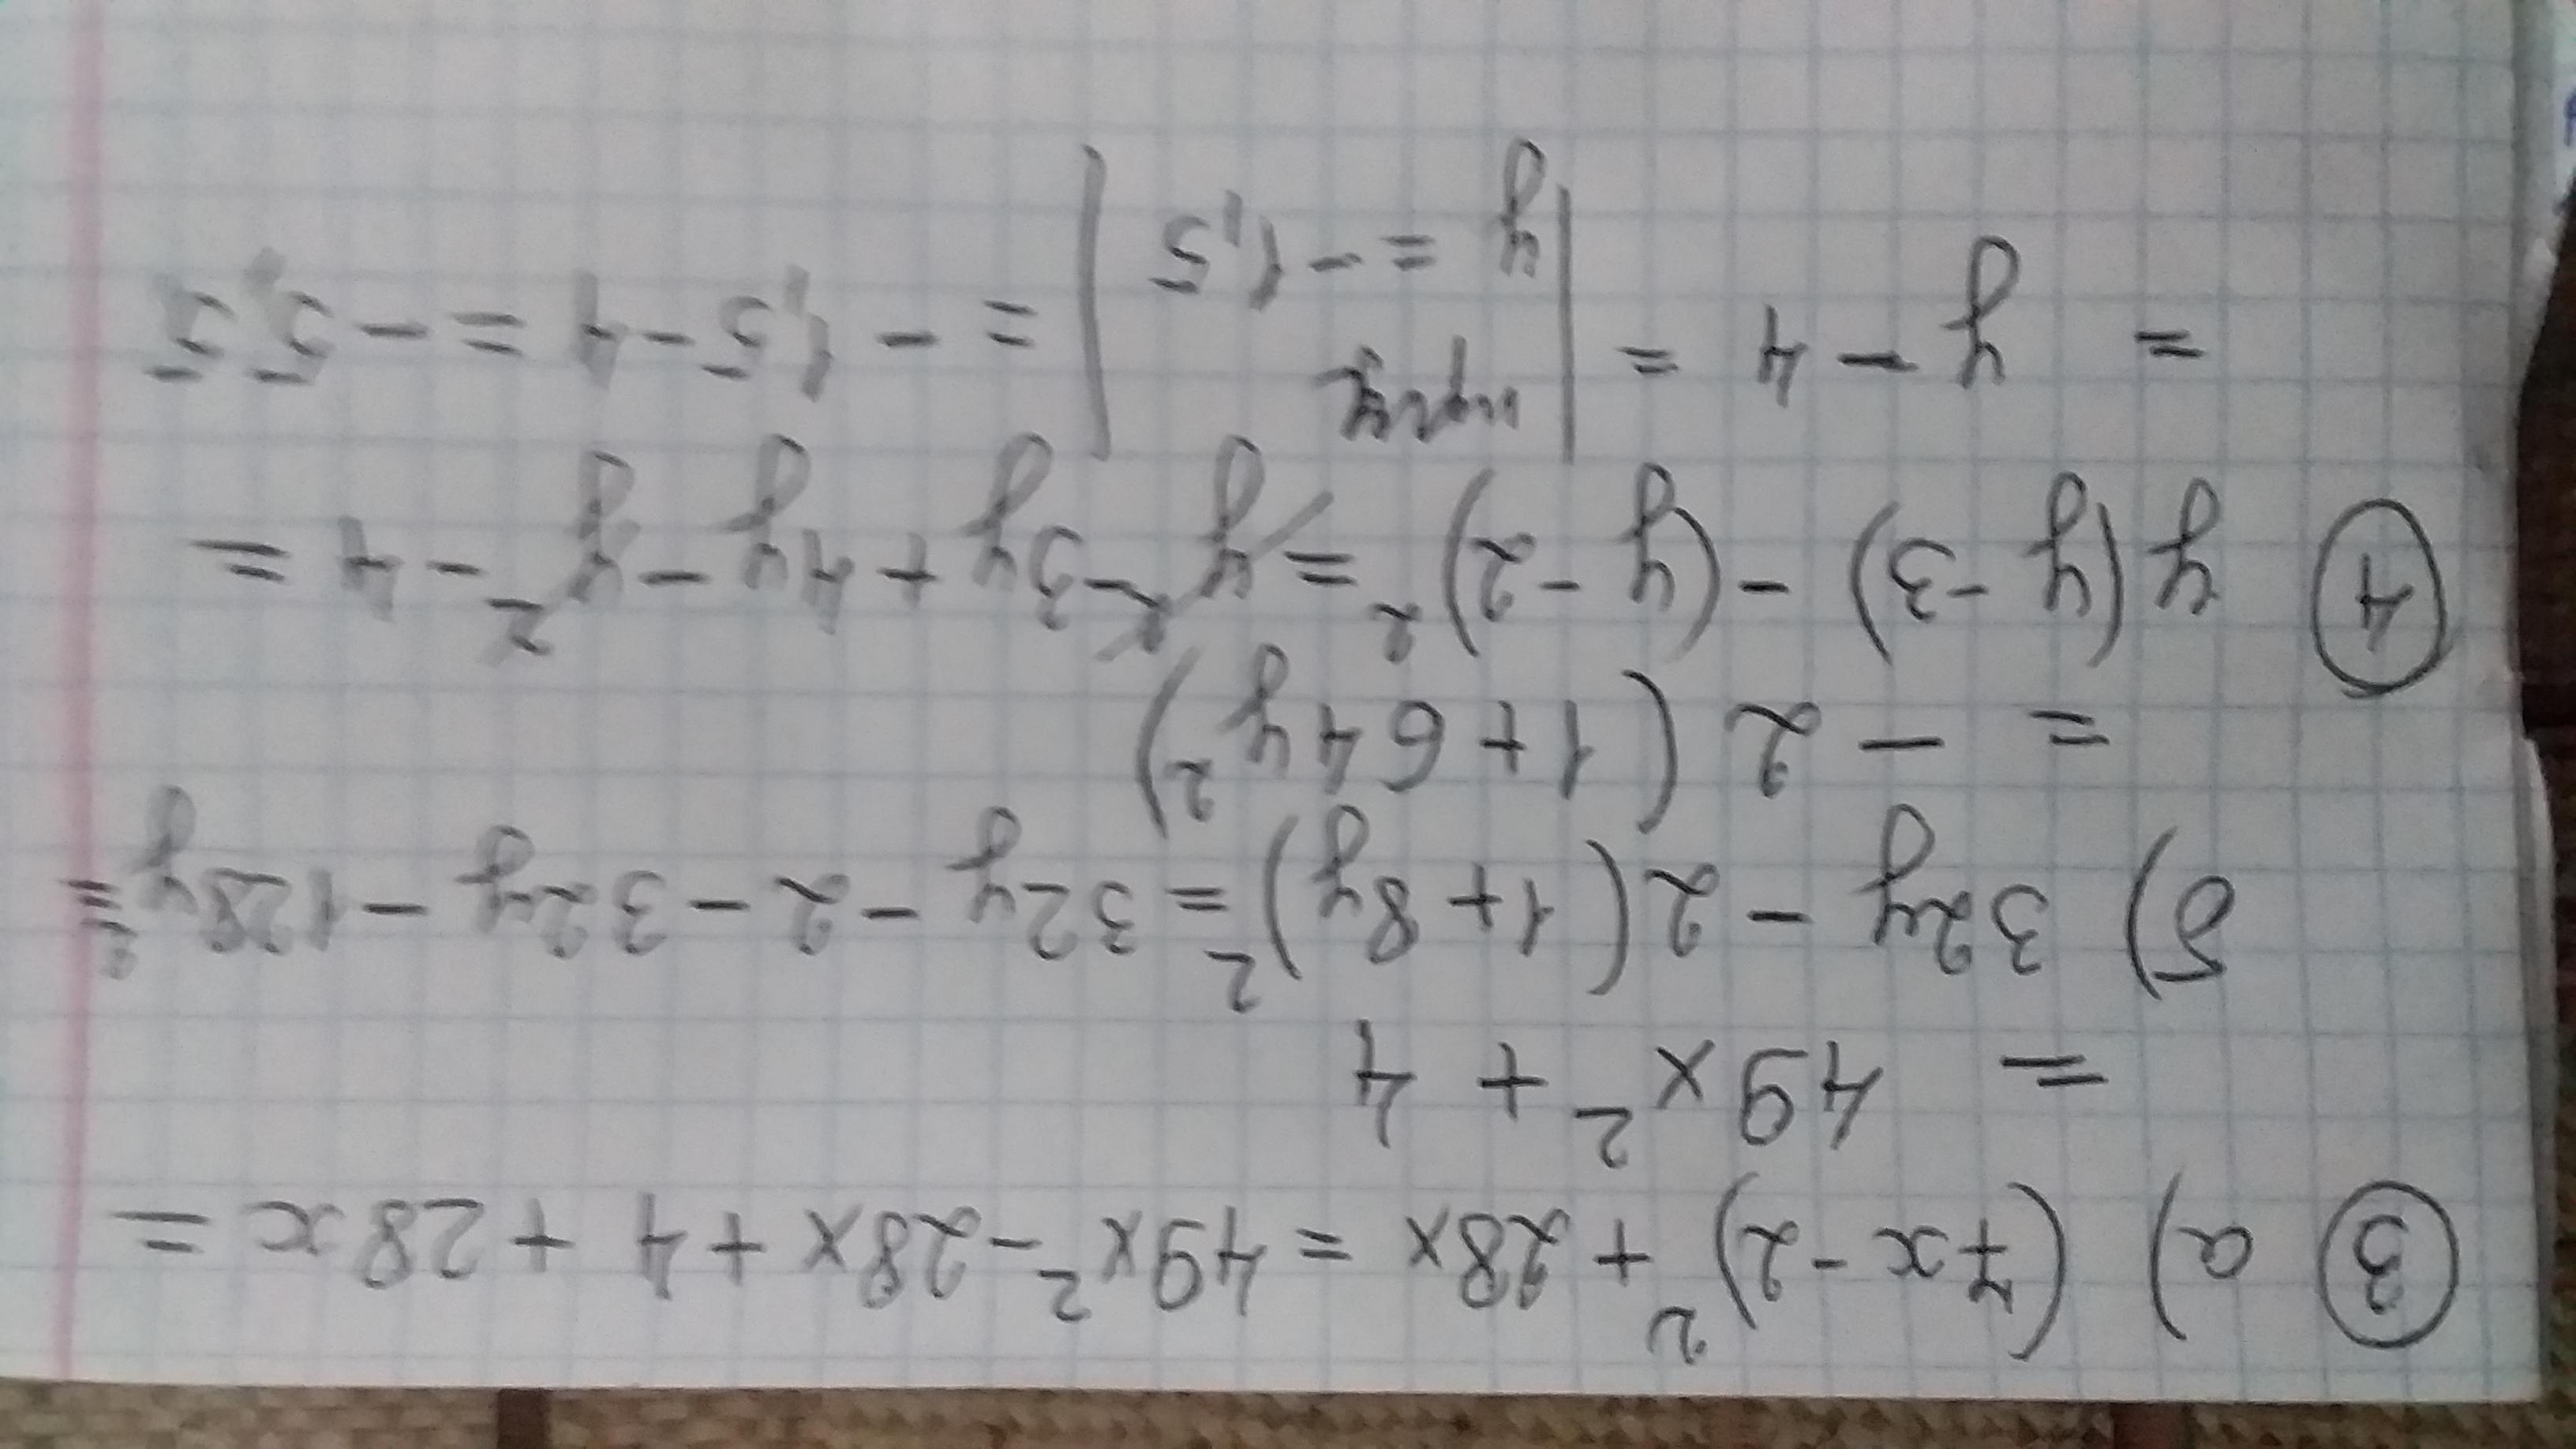 ③ а) (7x-2)² + 28x = 49x² - 28x + 4 + 28x =
= 49x² + 4
б) 32y - 2(1+8y)² = 32y - 2 - 32y - 128y² =
= - 2 (1 + 64y²)
④ y(y-3) - (y-2)² = y² - 3y + 4y - y² - 4 =
= y - 4 = | при y = -1,5 | = - 1,5 - 4 = - 5,5